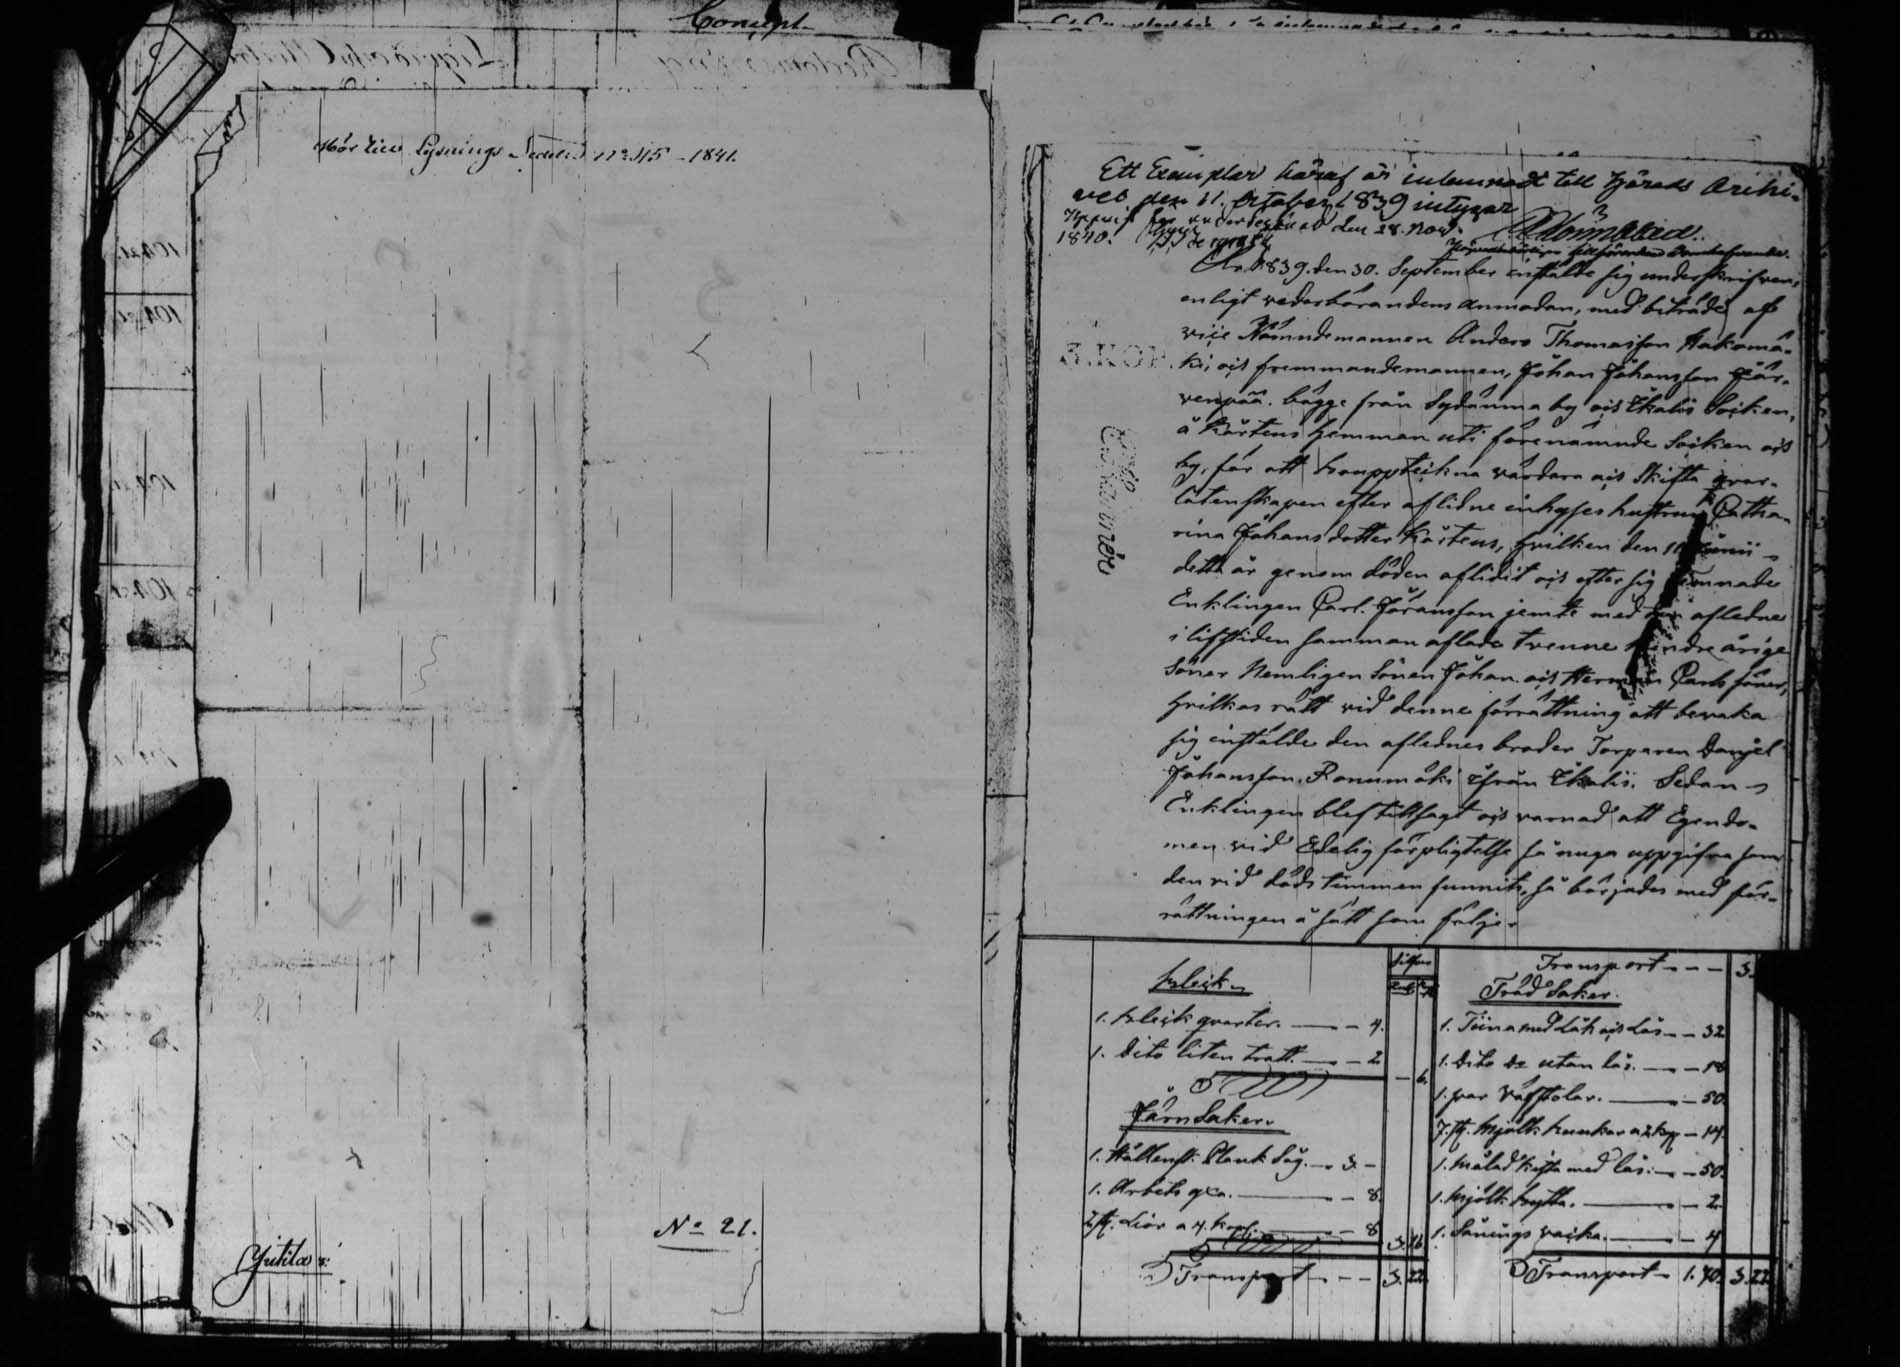 Concept
Hör till Lysnings Sedeln No 45 - 1841.
No 21.
Ett Exemplar häraf är inlemnadt till Härads Arki-
vet den 11. October 1839 intygar
Uppvist för undertecknad den 28. Nov.
1840.
År 1839. den 30. September instälde sig underskrifven,
enligt vederbörandens anmodan, med biträde af
vice Nämndemannen Anders Thomasson Hakamä-
ki, och fremmandemannen, Johan Johansson Jär-
venpää. bägge från Sydänma by och Ikalis Socken,
å Kärtens hemman uti förenämnde Socken och
by, för att uppteckna värdera och Skifta qvar-
låtenskapen efter aflidne inhyses hustrun Catha-
rina Johansdotter Kärtens, hvilken den Junii
detta år genom döden aflidit och efter sig lemnade
Enklingen Carl Johansson jemte med den aflednes
i lifstiden samman aflade tvenne mindreårige
Söner Nemligen Sönen Johan och Herman Carls söner,
hvilkas rätt vid denne förrättning att bevaka
sig instälde den aflednes broder Torparen Danjel
Johansson Ronumäki ifrån Ikalis. Sedan
Enklingen blef tillsagt och varnad att Egendo-
men vid Edelig förpligtelse så nuga uppgifva som
den vid döds timmen funnits, så börjades med för-
rättningen å sätt som följer.
3. KOP.
Silfver
Bleck
1. Bleck qvarter. — 4.
1. Dito liten tratt. — 2
— 6.
Järn Saker.
1. Hållensk Plank Såg. — 3. -
1. Arbets yxa. — 8.
2 st. Liar a 4. kop. — 8
3. 16
Transport — 3. 22.
Transport — 3.
Träd Saker.
1. Tiina med Låk och Lås — 32
1. Dito Do utan lås. — 18
1. par Väfstolar. — 50.
7. st. Mjölk bunkar a 2 kop — 14.
1. Målad kista med lås. — 50.
1. Mjölk bytta. — 2
1. Sånings vacka. — 4
Transport — 1. 70. 3. 22